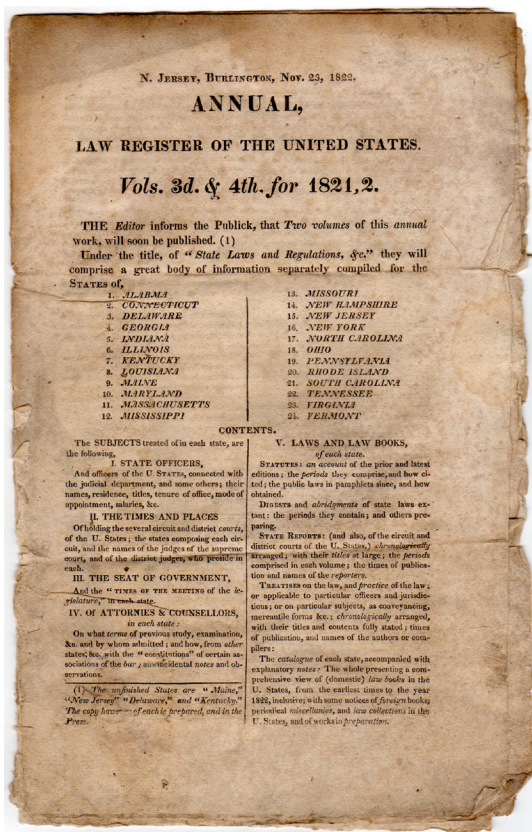 N. JERSEY, BURLINGTON, NOV. 23, 1822.
ANNUAL,
LAW REGISTER OF THE UNITED STATES.
Vols. 3d. & 4th. for 1821,2.
THE Editor informs the Publick, that Two volumes of this annual
work, will soon be published. (1)
Under the title, of "State Laws and Regulations, &c." they will
comprise a great body of information separately compiled for the
STATES of,
1. ALABMA
2. CONNECTICUT
3. DELAWARE
4. GEORGIA
5. INDIANA
6. ILLINOIS
7. KENTUCKY
8. LOUISIANA
9. MAINE
10. MARYLAND
11. MASSACHUSETTS
12. MISSISSIPPI
13. MISSOURI
14. NEW HAMPSHIRE
15. NEW JERSEY
16. NEW YORK
17. NORTH CAROLINA
18. OHIO
19. PENNSYLVANIA
20. RHODE ISLAND
21. SOUTH CAROLINA
22. TENNESSEE
23. VIRGINIA
24. VERMONT
CONTENTS.
The SUBJECTS treated of in each state, are
the following,
I. STATE OFFICERS,
And officers of the U. STATES, connected with
the judicial department, and some others; their
names, residence, titles, tenure of office, mode of
appointment, salaries, &c.
II. THE TIMES AND PLACES
Of holding the several circuit and district courts,
of the U. States; the states composing each cir-
cuit, and the names of the judges of the supreme
court, and of the district judges, who preside in
each.
III. THE SEAT OF GOVERNMENT,
And the "TIMES OF THE MEETING of the le-
gislature," in each state.
IV. OF ATTORNIES & COUNSELLORS,
in each state:
On what terms of previous study, examination,
&c. and by whom admitted; and how, from other
states; &c. with the "constitutions" of certain as-
sociations of the bar; incidental notes and ob-
servations.
(1) The unfinished States are "Maine,"
"New Jersey" "Delaware," and "Kentucky."
The copy however of each is prepared, and in the
Press.
V. LAWS AND LAW BOOKS,
of each state.
STATUTES: an account of the prior and latest
editions; the periods they comprise, and how ci-
ted; the public laws in pamphlets since, and how
obtained.
DIGESTS and abridgments of state laws ex-
tant: the periods they contain; and others pre-
paring.
STATE REPORTS: (and also, of the circuit and
district courts of the U. States,) chronologically
arranged; with their titles at large; the periods
comprised in each volume; the times of publica-
tion and names of the reporters.
TREATISES on the law, and practice of the law;
or applicable to particular officers and jurisdic-
tions; or on particular subjects, as conveyancing,
mercantile forms &c.; chronologically arranged,
with their titles and contents fully stated; times
of publication, and names of the authors or com-
pilers:
The catalogue of each state, accompanied with
explanatory notes: The whole presenting a com-
prehensive view of (domestic) law books in the
U. States, from the earliest times to the year
1822, inclutive; with some notices of foreign books;
periodical miscellanies, and law collections in the
U. States, and of works in preparation.